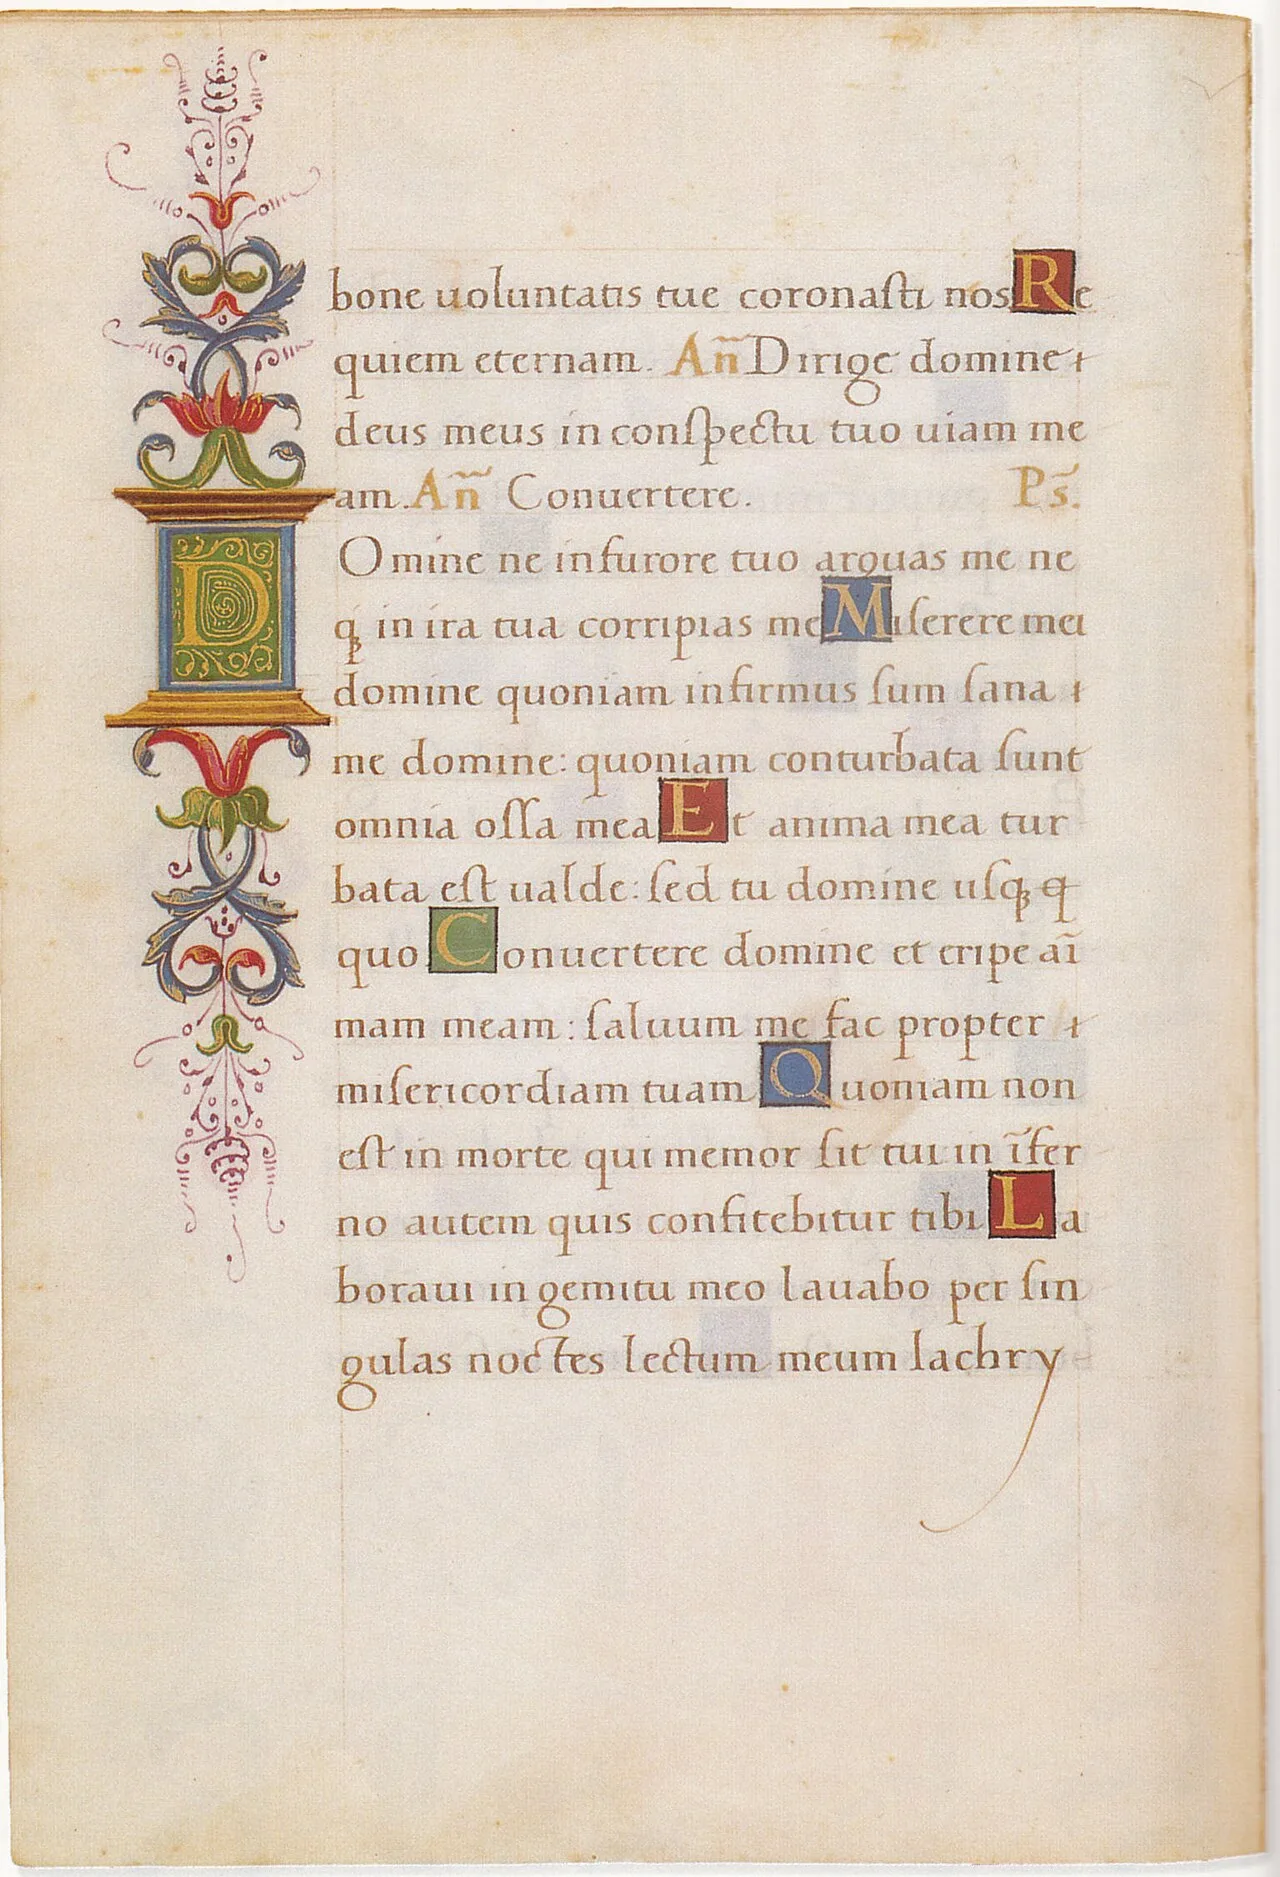 bone uoluntatis tue coronaſti nos Re
quiem eternam. An̄ Dirige domine
deus meus in conſpectu tuo uiam me
am. An̄ Conuertere. Ps̄.
DOmine ne in furore tuo arguas me ne
qꝫ in ira tua corripias me Miſerere mei
domine quoniam infirmus ſum ſana
me domine: quoniam conturbata ſunt
omnia oſſa mea Et anima mea tur
bata eſt ualde: ſed tu domine uſqꝫ q̄
quo Conuertere domine et eripe aī
mam meam: ſaluum me fac propter
miſericordiam tuam Quoniam non
eſt in morte qui memor ſit tui in īfer
no autem quis confitebitur tibi La
boraui in gemitu meo lauabo per ſin
gulas noctes lectum meum lachry